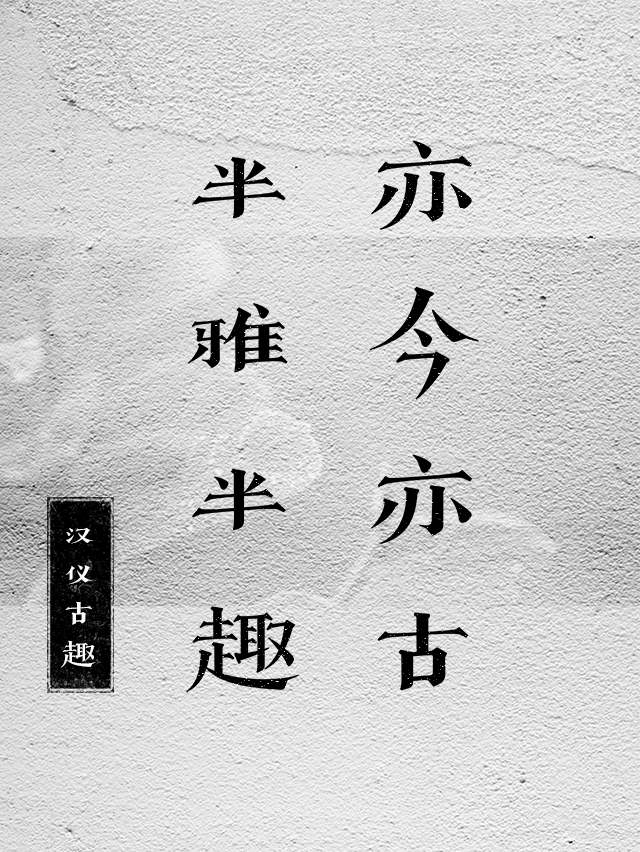 亦今亦古
半雅半趣
汉仪古趣